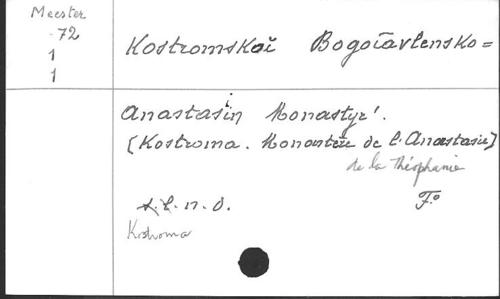 Meester
-72
1
1
Kostromskoĭ Bogoīavlensko=
Anastasin Monastyr'.
[Kostroma. Monastère de l'Anastasie]
de la Théophanie
F°
s.l.n.d.
Kostroma